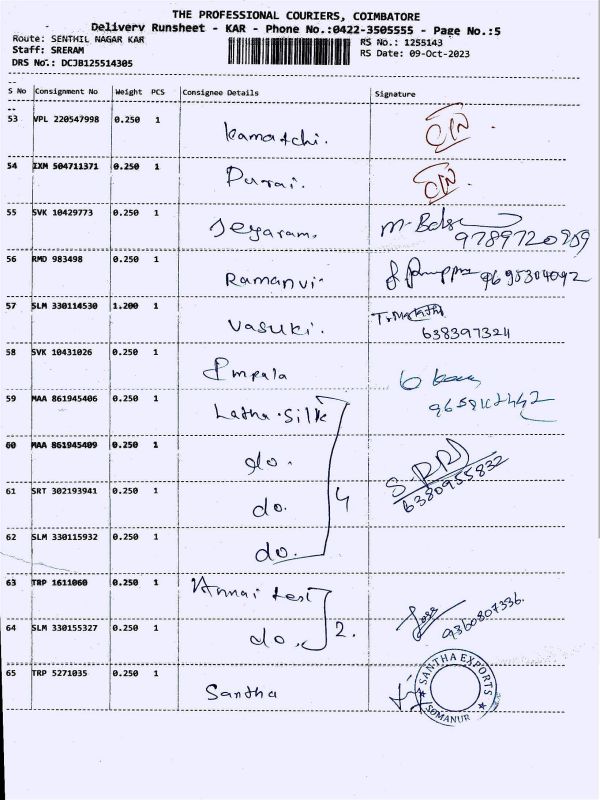 THE PROFESSIONAL COURIERS, COIMBATORE
Delivery Runsheet - KAR - Phone No.:0422-3505555 - Page No.:5
Route: SENTHIL NAGAR KAR
Staff: SRERAM
DRS No.: DCJB125514305
RS No.: 1255143
RS Date: 09-Oct-2023
S No Consignment No Weight PCS Consignee Details Signature
53 VPL 220547998 0.250 1 Kamatchi.
54 IXM 504711371 0.250 1
55 SVK 10429773 0.250 1 Jeyaram. 9789720959
56 RMD 983498 0.250 1 Ramanvi. 9695304092
57 SLM 330114530 1.200 1 Vasuki. 638397324
58 SVK 10431026 0.250 1 Impala
59 MAA 861945406 0.250 1 Latha.Silk
60 MAA 861945409 0.250 1 do. 4 6380955832
61 SRT 302193941 0.250 1 do.
62 SLM 330115932 0.250 1 do.
63 TRP 1611060 0.250 1 Annai test
64 SLM 330155327 0.250 1 do. 2. 9360807336.
65 TRP 5271035 0.250 1 Santha SANTHA EXPORTS SOMANUR